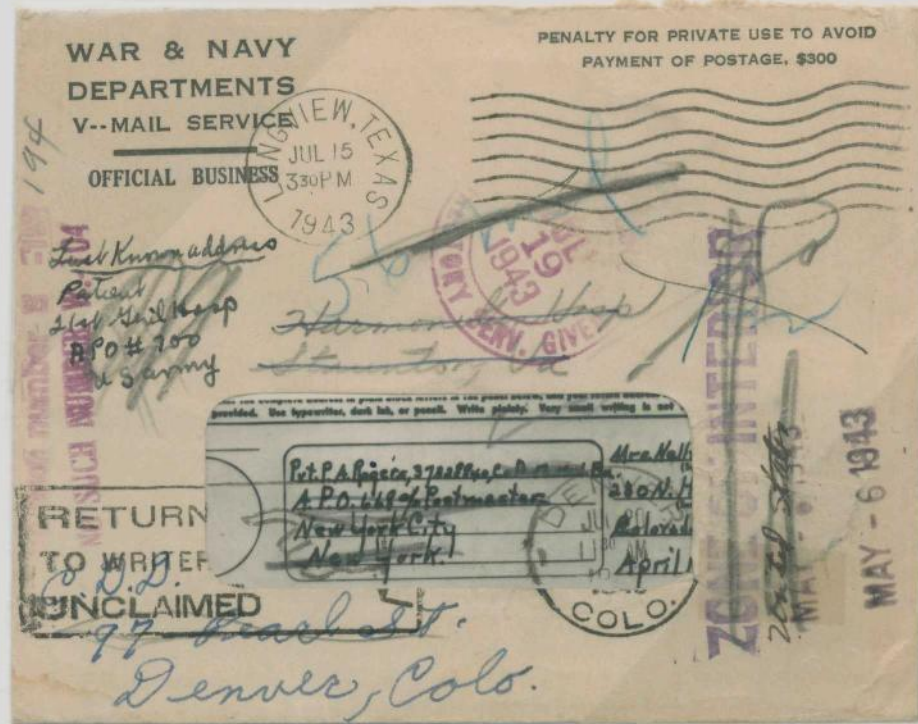 WAR & NAVY
DEPARTMENTS
V--MAIL SERVICE
OFFICIAL BUSINESS
PENALTY FOR PRIVATE USE TO AVOID
PAYMENT OF POSTAGE, $300
LONGVIEW, TEXAS
JUL 15
330PM
1943
194
Last Known address
Patient
21st Gen'l Hosp
APO # 700
US Army
JUL
19
1943
DIRECTORY SERV. GIVEN
Harmon Hosp
Staunton, Va
NO SUCH NUMBER
provided. Use typewriter, dark ink, or pencil. Write plainly. Very small writing is not
Pvt. P. A. Rogers,
A.P.O. 668 % Postmaster
New York City
New York.
Mrs. Nell
230 N. H
Colorad
April
RETURN
TO WRITER
UNCLAIMED
AM
COLO.
C.D.D.
97 Pearl St.
Denver, Colo.
ZONE OF INTERIOR
United States
MAY - 6 1943